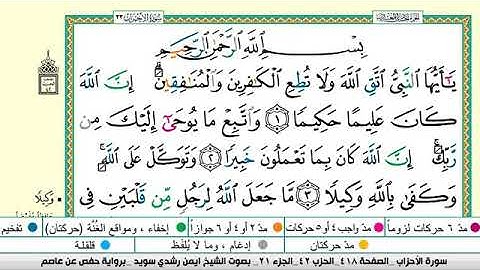 سورة الأحزاب ٣٣
بِسْمِ ٱللَّهِ ٱلرَّحْمَٰنِ ٱلرَّحِيمِ
يَٰٓأَيُّهَا ٱلنَّبِيُّ ٱتَّقِ ٱللَّهَ وَلَا تُطِعِ ٱلْكَٰفِرِينَ وَٱلْمُنَٰفِقِينَ ۗ إِنَّ ٱللَّهَ
كَانَ عَلِيمًا حَكِيمًا ١ وَٱتَّبِعْ مَا يُوحَىٰٓ إِلَيْكَ مِن
رَّبِّكَ ۚ إِنَّ ٱللَّهَ كَانَ بِمَا تَعْمَلُونَ خَبِيرًا ٢ وَتَوَكَّلْ عَلَى ٱللَّهِ ۚ
وَكَفَىٰ بِٱللَّهِ وَكِيلًا ٣ مَّا جَعَلَ ٱللَّهُ لِرَجُلٍ مِّن قَلْبَيْنِ فِي
وَكِيلًا
مدّ ٦ حركات لزوماً مدّ واجب ٤ أو ٥ حركات مدّ ٢ أو ٤ أو ٦ جوازاً إخفاء ، ومواقع الغُنَّة (حركتان) تفخيم
مدّ حركتان إدغام ، وما لا يُلفَظ قلقلة
سورة الأحزاب _ الصفحة ٤١٨ _ الحزب ٤٢ _ الجزء ٢١ _ بصوت الشيخ ايمن رشدي سويد _ برواية حفص عن عاصم